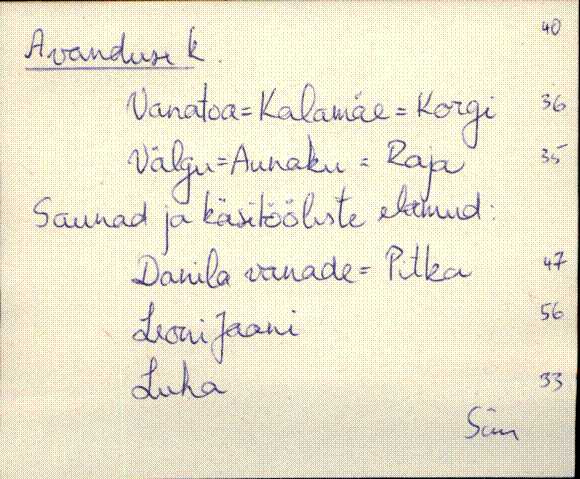 40
Avanduse k.
Vanatoa=Kalamäe=Korgi 36
Välgu=Aunaku = Raja 35
Saunad ja käsitööliste elamud:
Danila vanade= Pitka 47
Leoni Jaani 56
Luha 33